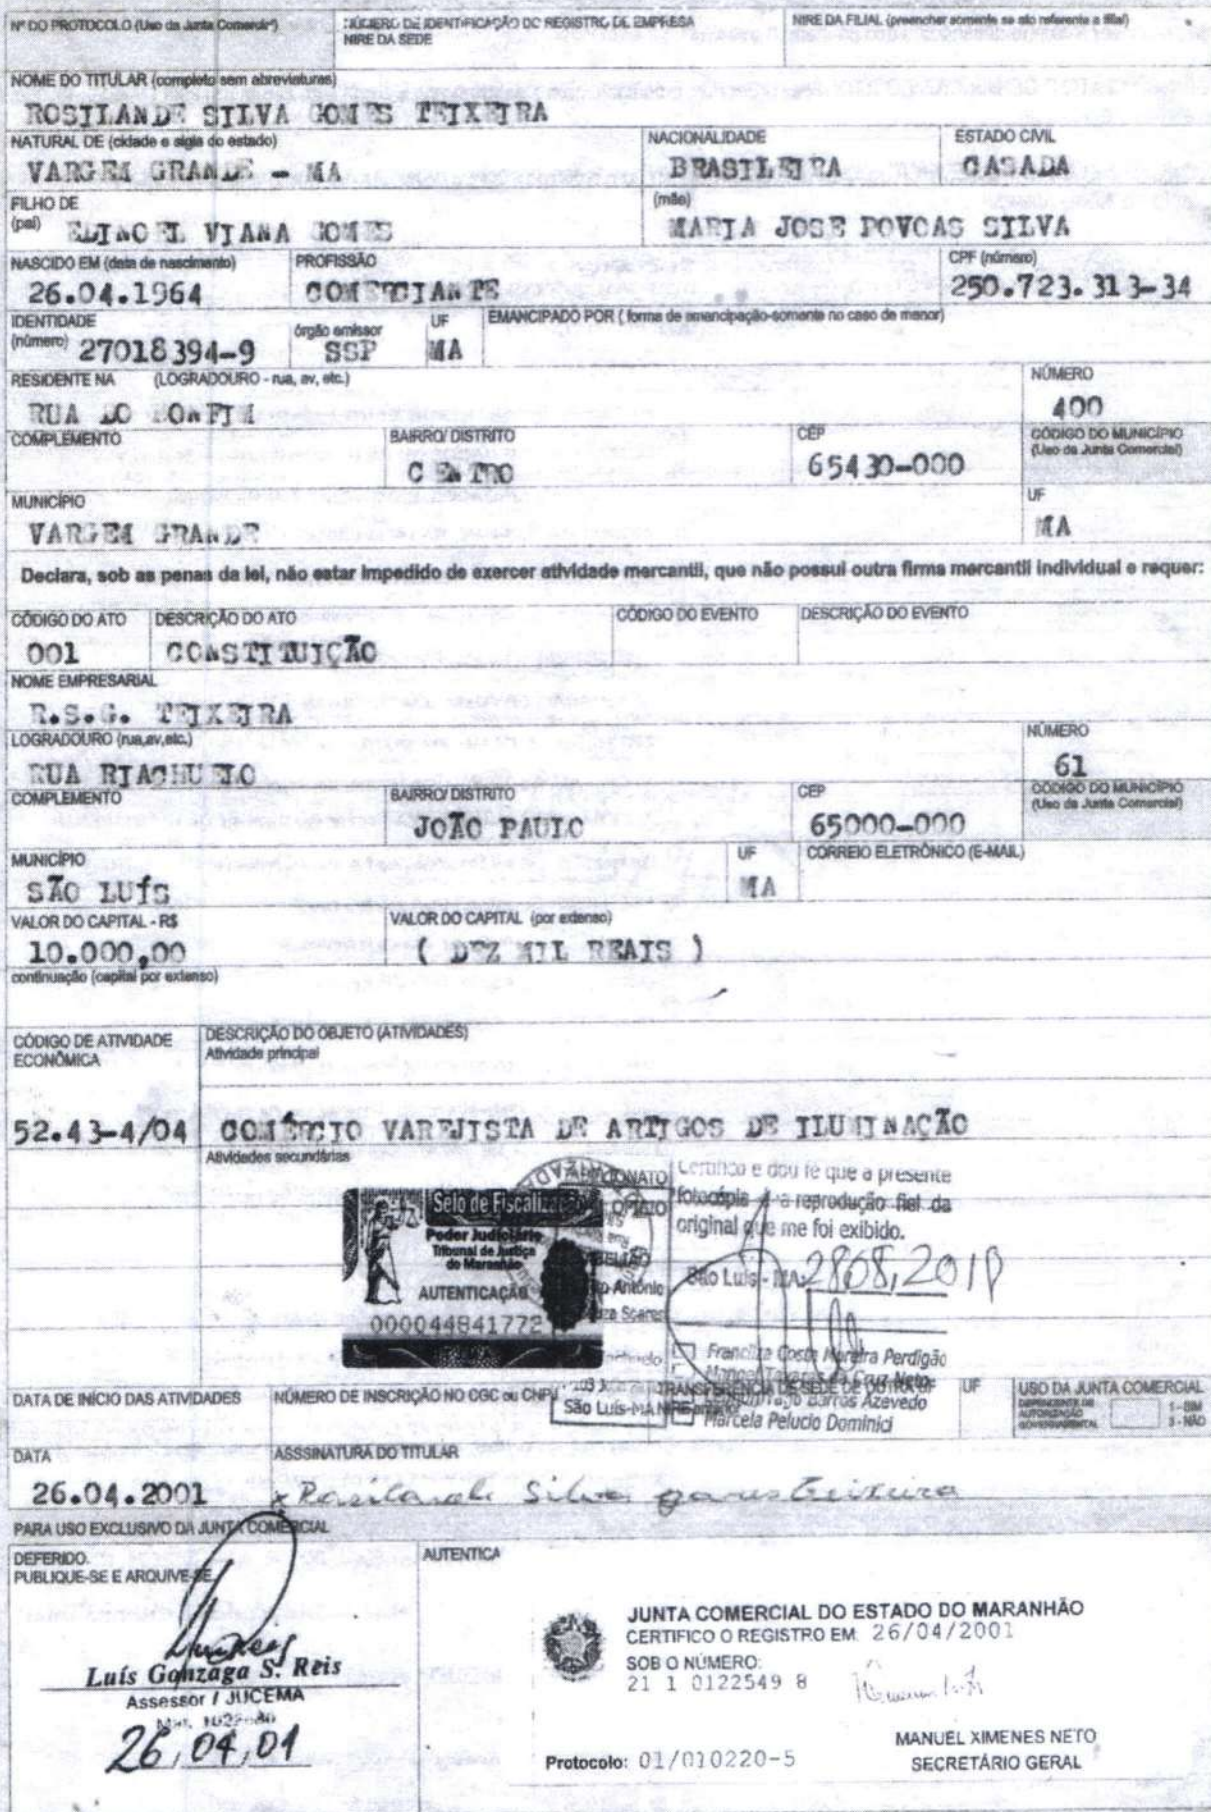 Nº DO PROTOCOLO (Uso da Junta Comercial)
NÚMERO DE IDENTIFICAÇÃO DO REGISTRO DE EMPRESA
NIRE DA SEDE
NIRE DA FILIAL (preencher somente se ato referente a filial)
NOME DO TITULAR (completo sem abreviaturas)
ROSILANDE SILVA GOMES TEIXEIRA
NATURAL DE (cidade e sigla do estado)
NACIONALIDADE
ESTADO CIVIL
VARGEM GRANDE - MA
BRASILEIRA
CASADA
FILHO DE
(pai)
(mãe)
EDINOEL VIANA GOMES
MARIA JOSE POVOAS SILVA
NASCIDO EM (data de nascimento)
PROFISSÃO
CPF (número)
26.04.1964
COMERCIANTE
250.723.313-34
IDENTIDADE
(número)
órgão emissor
UF
EMANCIPADO POR ( forma de emancipação-somente no caso de menor)
27018394-9
SSP
MA
RESIDENTE NA (LOGRADOURO - rua, av, etc.)
NÚMERO
RUA DO BONFIM
400
COMPLEMENTO
BAIRRO/ DISTRITO
CEP
CÓDIGO DO MUNICÍPIO
(Uso da Junta Comercial)
CENTRO
65430-000
MUNICÍPIO
UF
VARGEM GRANDE
MA
Declara, sob as penas da lei, não estar impedido de exercer atividade mercantil, que não possui outra firma mercantil individual e requer:
CÓDIGO DO ATO
DESCRIÇÃO DO ATO
CÓDIGO DO EVENTO
DESCRIÇÃO DO EVENTO
001
CONSTITUIÇÃO
NOME EMPRESARIAL
R.S.G. TEIXEIRA
LOGRADOURO (rua,av,etc.)
NÚMERO
RUA RIACHUELO
61
COMPLEMENTO
BAIRRO/ DISTRITO
CEP
CÓDIGO DO MUNICÍPIO
(Uso da Junta Comercial)
JOÃO PAULO
65000-000
MUNICÍPIO
UF
CORREIO ELETRÔNICO (E-MAIL)
SÃO LUÍS
MA
VALOR DO CAPITAL - R$
VALOR DO CAPITAL (por extenso)
10.000,00
( DEZ MIL REAIS )
continuação (capital por extenso)
CÓDIGO DE ATIVIDADE
ECONÔMICA
DESCRIÇÃO DO OBJETO (ATIVIDADES)
Atividade principal
52.43-4/04
COMÉRCIO VAREJISTA DE ARTIGOS DE ILUMINAÇÃO
Atividades secundárias
Selo de Fiscalização
Poder Judiciário
Tribunal de Justiça
do Maranhão
AUTENTICAÇÃO
000044841772
Certifico e dou fé que a presente
fotocópia é a reprodução fiel da
original que me foi exibido.
São Luís - MA
Francliza Costa Moreira Perdigão
Manoel Tavares da Cruz Neto
Tiago Barros Azevedo
Marcela Pelucio Dominici
São Luís-MA
DATA DE INÍCIO DAS ATIVIDADES
NÚMERO DE INSCRIÇÃO NO CGC ou CNPJ
TRANSFERÊNCIA DE SEDE DE OUTRA UF
NIRE anterior
UF
USO DA JUNTA COMERCIAL
DEPENDENTE DE
AUTORIZAÇÃO
GOVERNAMENTAL
1 - SIM
3 - NÃO
DATA
ASSSINATURA DO TITULAR
26.04.2001
x Rosilande Silva gomes teixeira
PARA USO EXCLUSIVO DA JUNTA COMERCIAL
DEFERIDO.
PUBLIQUE-SE E ARQUIVE-SE
AUTENTICA
Luís Gonzaga S. Reis
Assessor / JUCEMA
26/04/01
JUNTA COMERCIAL DO ESTADO DO MARANHÃO
CERTIFICO O REGISTRO EM 26/04/2001
SOB O NÚMERO:
21 1 0122549 8
Protocolo: 01/010220-5
MANUEL XIMENES NETO
SECRETÁRIO GERAL